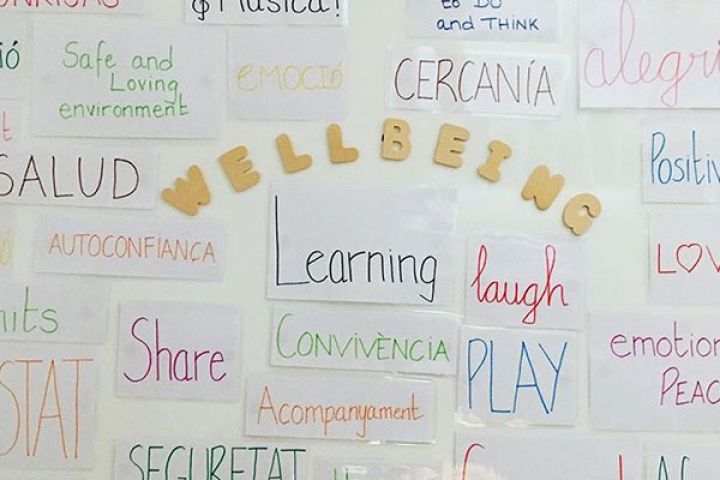 Música!
to DO
and THINK
Safe and
Loving
environment
EMOCIÓ
CERCANÍA
alegrí
WELLBEING
SALUD
Positiv
AUTOCONFIANÇA
Learning
laugh
LOV
mits
Share
CONVIVÈNCIA
PLAY
emotion
PEAC
STAT
Acompanyament
SEGURETAT